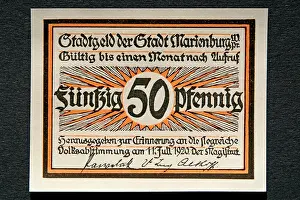 Stadtgeld der Stadt Marienburg W/Pr.
Gültig bis einen Monat nach Aufruf
Fünfzig 50 Pfennig
Herausgegeben zur Erinnerung an die siegreiche
Volksabstimmung am 11. Juli 1920. Der Magistrat.